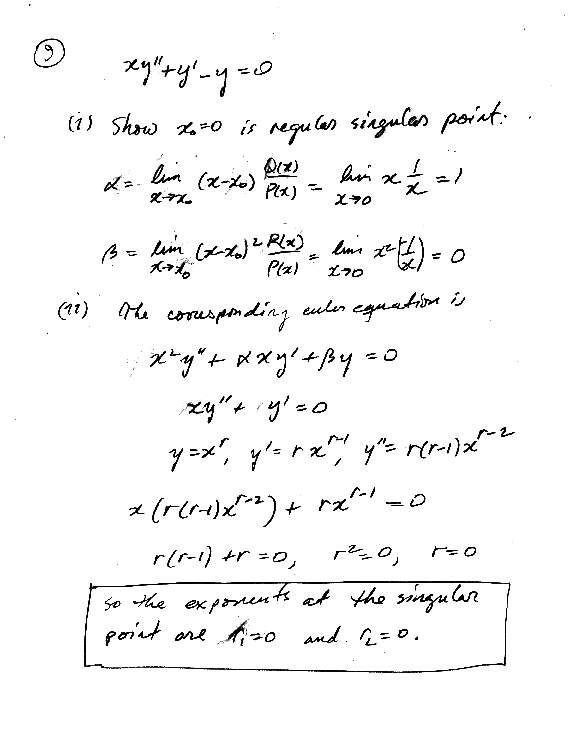 9
xy"+y'-y=0
(i) Show x₀=0 is regular singular point.
α = lim x→x₀ (x-x₀) Q(x)/P(x) = lim x→0 x 1/x = 1
β = lim x→x₀ (x-x₀)² R(x)/P(x) = lim x→0 x²(-1/x) = 0
(ii) The corresponding euler equation is
x²y" + αxy' + βy = 0
xy" + y' = 0
y=x^r, y'=r x^(r-1), y"= r(r-1)x^(r-2)
x(r(r-1)x^(r-2)) + rx^(r-1) = 0
r(r-1)+r=0, r²=0, r=0
So the exponents at the singular
point are r₁=0 and r₂=0.